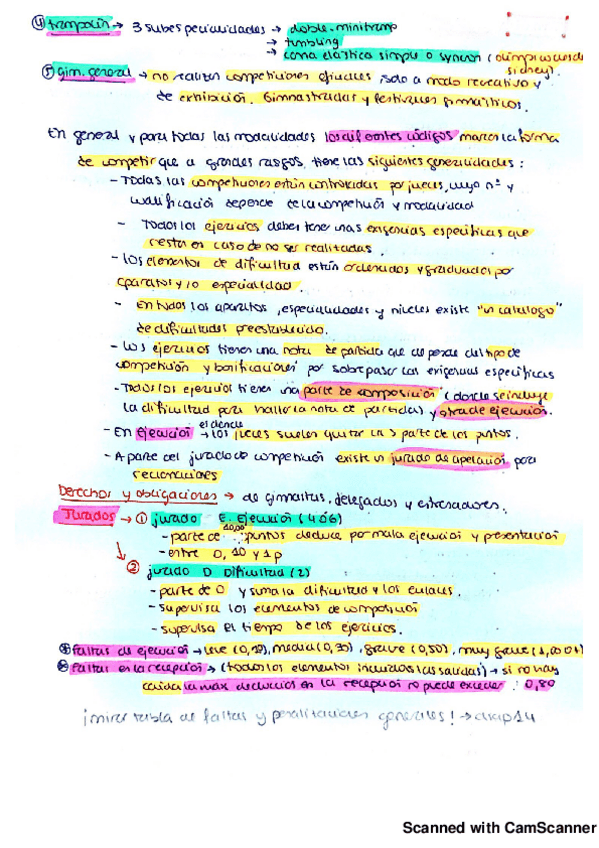 ④ trampolín → 3 subespecialidades → doble-minitramp
→ tumbling
→ cama elástica simple o syncron (olímpico desde
sidney)
⑤ Gim. general → no realizan competiciones oficiales solo a modo recreativo y
de exhibición. Gimnastradas y festivales gimnásticos.
En general y para todas las modalidades los diferentes códigos marcan la forma
de competir que a grandes rasgos, tiene las siguientes generalidades:
- Todas las competiciones están controladas por jueces, cuyo nº y
cualificación depende de la competición y modalidad
- Todos los ejercicios deben tener unas exigencias específicas que
restan en caso de no ser realizadas.
- Los elementos de dificultad están ordenados y graduados por
aparatos y/o especialidad.
- En todos los aparatos, especialidades y niveles existe "un catálogo"
de dificultades preestablecido.
- Los ejercicios tienen una nota de partida que depende del tipo de
competición y bonificaciones por sobrepasar las exigencias específicas
- Todos los ejercicios tienen una parte de composición (donde se incluye
la dificultad para hallar la nota de partida) y otra de ejecución.
- En ejecución → los jueces suelen quitar la parte de los puntos.
- A parte del jurado de competición existe un jurado de apelación para
reclamaciones
Derechos y obligaciones → de gimnastas, delegados y entrenadores.
Jurados → ① jurado E. Ejecución (4 ó 6)
- parte de 10,00 puntos deduce por mala ejecución y presentación
- entre 0,10 y 1p
② jurado D Dificultad (2)
- parte de 0 y suma la dificultad y los enlaces.
- supervisa los elementos de composición
- supervisa el tiempo de los ejercicios.
faltas de ejecución → leve (0,10), media (0,30), grave (0,50), muy grave (1,00 ó +)
faltas en la recepción → (todos los elementos incluidos las salidas) → si no hay
caída la max deducción en la recepción no puede exceder: 0,80
¡mirar tabla de faltas y penalizaciones generales! →
Scanned with CamScanner